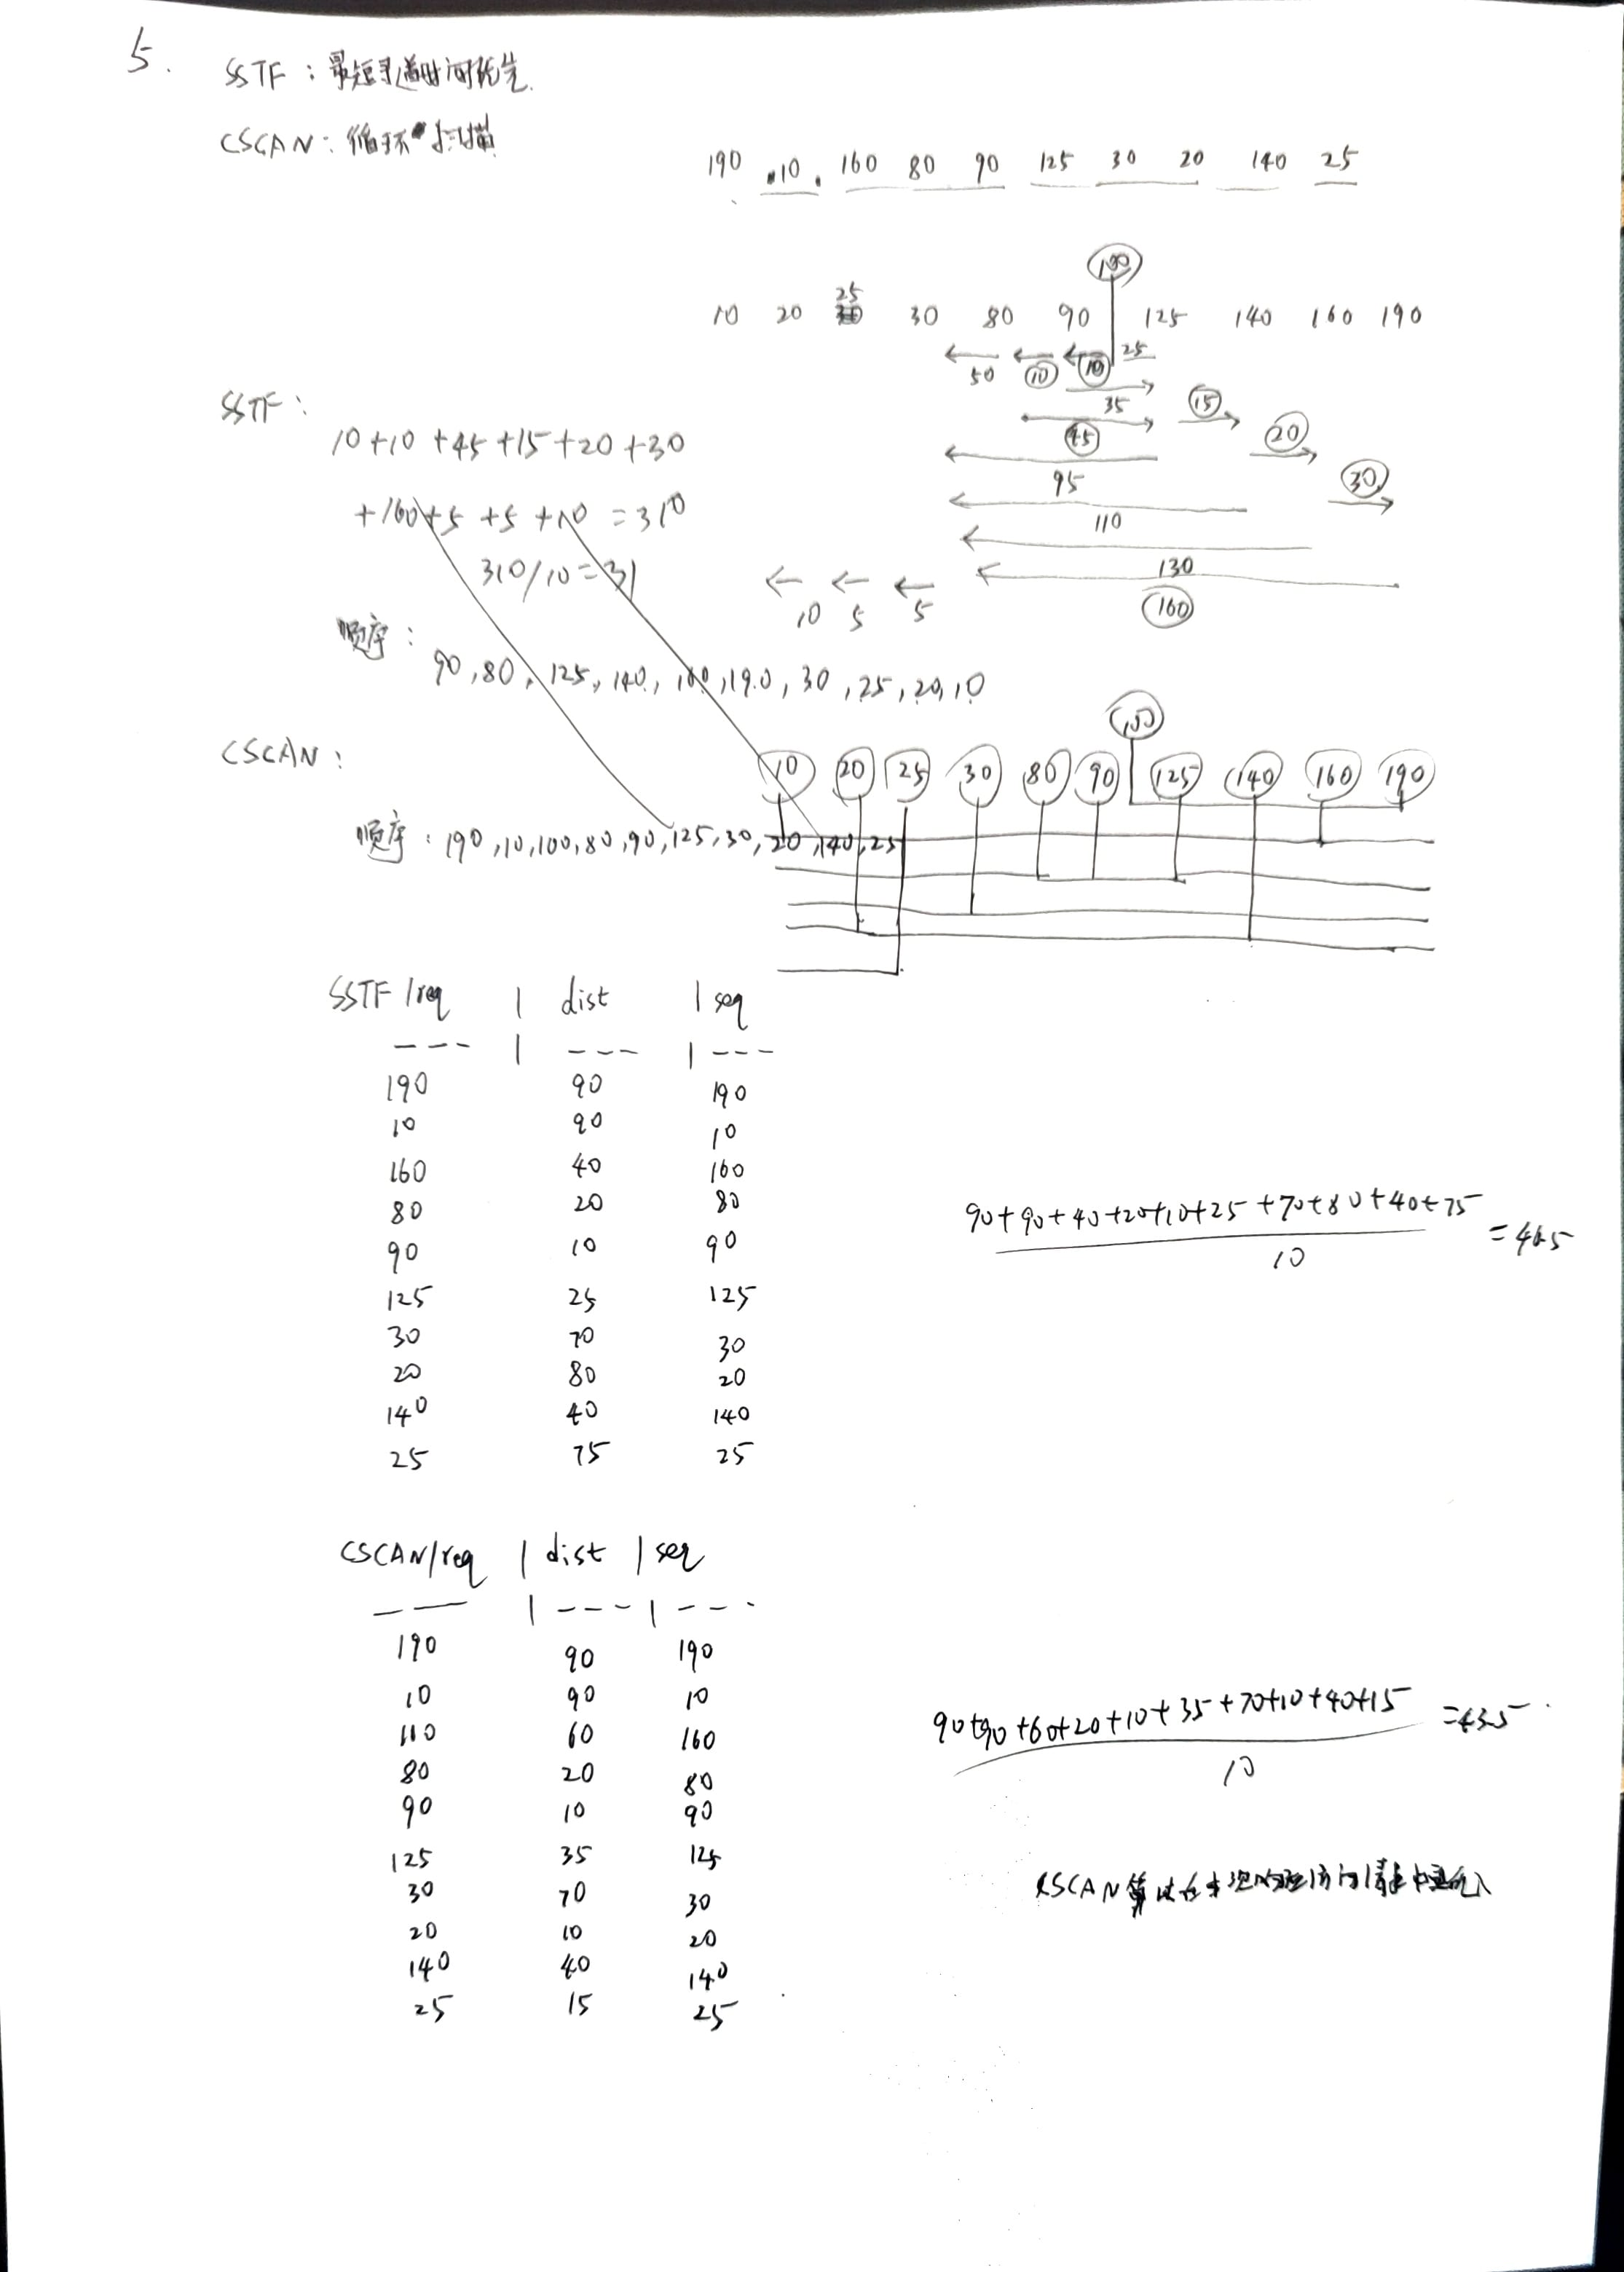 5.
SSTF：最短寻道时间优先.
CSCAN：循环扫描
190 10 160 80 90 125 30 20 140 25
100
25
10 20 30 80 90 125 140 160 190
50 10 10 25
SSTF：
35 15
10+10+45+15+20+30
45 20
95 30
+160+5+5+10=310
110
310/10=31
130
10 5 5 160
顺序：
90,80,125,140,160,190,30,25,20,10
100
CSCAN：
10 20 25 30 80 90 125 140 160 190
顺序：190,10,100,80,90,125,30,20,140,25
SSTF/req | dist | seq
--- | --- | ---
190 90 190
10 90 10
160 40 160
80 20 80
90 10 90
125 25 125
30 70 30
20 80 20
140 40 140
25 75 25
90+90+40+20+10+25+70+80+40+75
10
=46.5
CSCAN/req | dist | seq
--- | --- | ---
190 90 190
10 90 10
110 60 160
80 20 80
90 10 90
125 35 125
30 70 30
20 10 20
140 40 140
25 15 25
90+90+60+20+10+35+70+10+40+15
10
=43.5
CSCAN算法